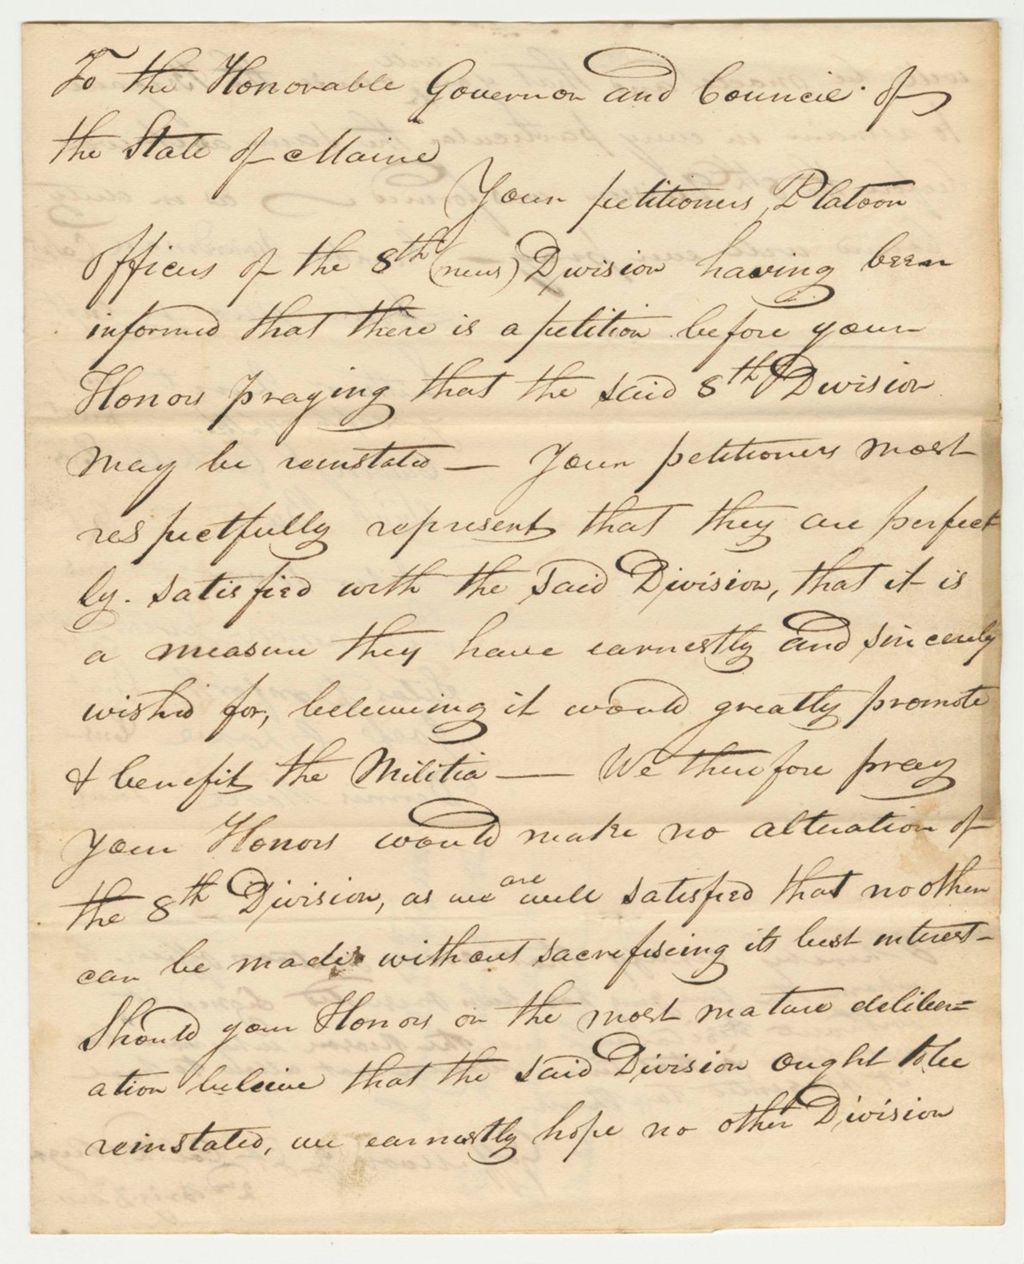 To the Honorable Governor and Council of
the State of Maine
Your petitioners Platoon
officers of the 8th (new) Division having been
informed that there is a petition before your
Honors praying that the said 8th Division
may be reinstated — Your petitioners most
respectfully represent that they are perfect-
ly satisfied with the said Division, that it is
a measure they have earnestly and sincerely
wish'd for, beleiveing it would greatly promote
& benefit the Militia — We therefore pray
your Honors would make no alteration of
the 8th Division, as we are well satisfied that no other
can be made without sacrefiseing its best interest —
Should your Honors on the most mature deliber=
ation beleive that the said Division ought to be
reinstated, we earnestly hope no other Division